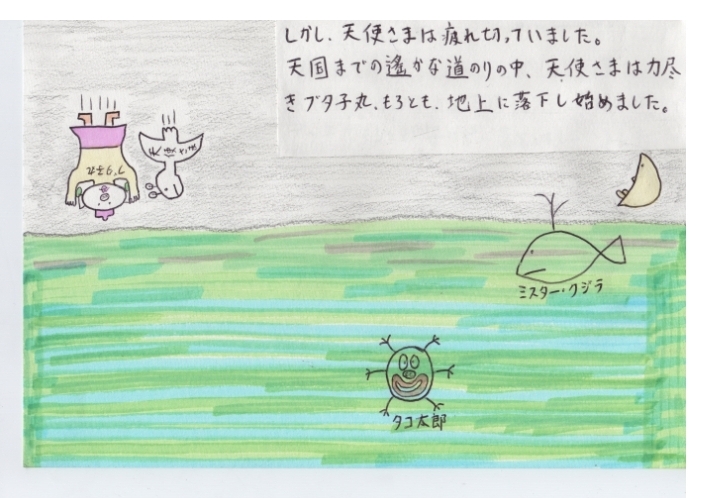 しかし、天使さまは疲れ切っていました。
天国までの遙かな道のりの中、天使さまは力尽
きブタ子丸、もろとも、地上に落下し始めました。
ブタ子丸
ミスター・クジラ
タコ太郎